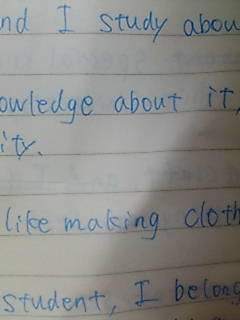 nd I study abou
owledge about it,
ity.
like making cloth
student, I belong